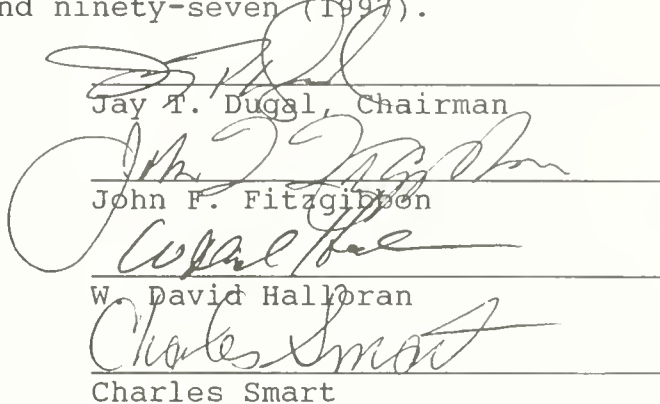 nd ninety-seven (1997).
Jay T. Dugal, Chairman
John F. Fitzgibbon
W. David Halloran
Charles Smart
Charles Smart